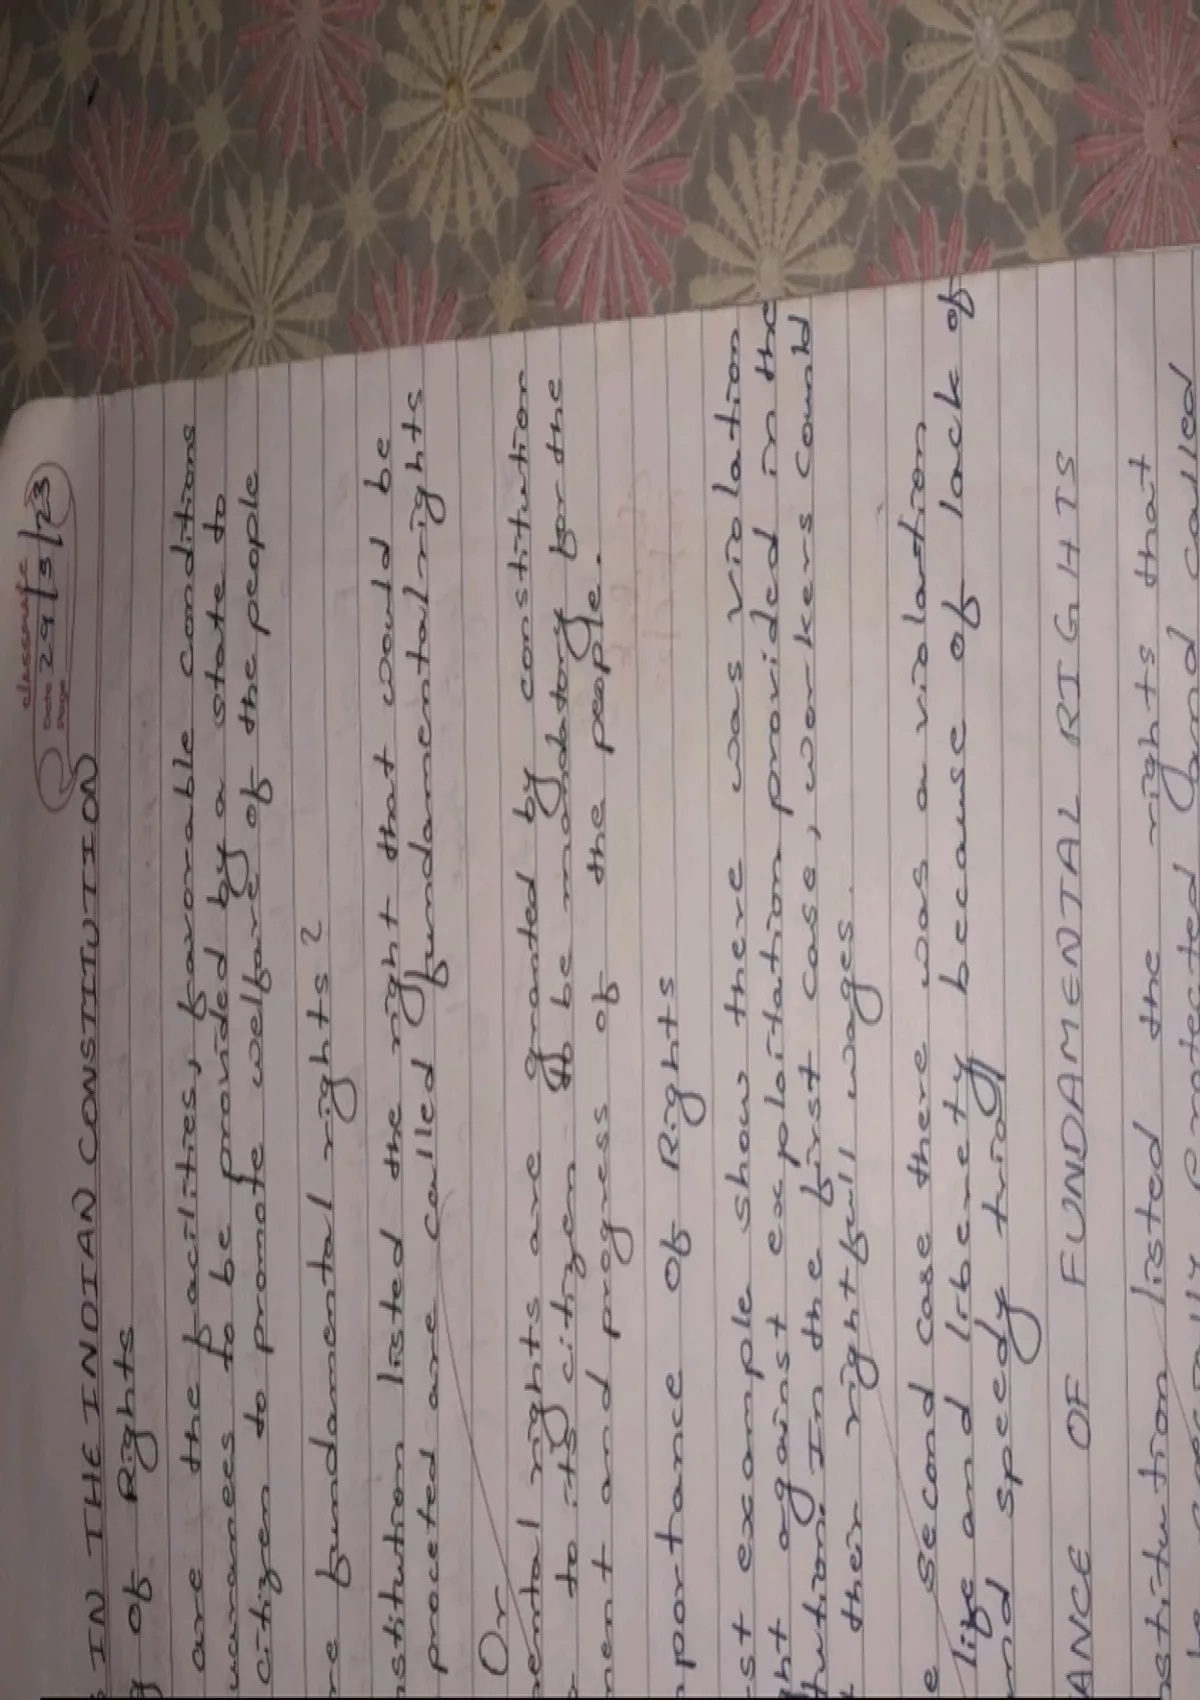 classmate
Date 29/5/23
Page
IN THE INDIAN CONSTITUTION
of Rights
are the facilities, favorable conditions
uranees to be provided by a state to
citizen to promote welfare of the people
re fundamental rights?
stitution listed the right that would be
proceted are called fundamental rights
Or
mental rights are granted by constitution
to its citizen to be mandatory for the
ment and progress of the people.
portance of Rights
st example show there was violation
ht against exploitation provided in the
tution. In the first case, workers could
their rightfull wages.
e second case there was a violation
life and liberety because of lack of
nd speedy trial
ANCE OF FUNDAMENTAL RIGHTS
stitution listed the rights that
protected and called